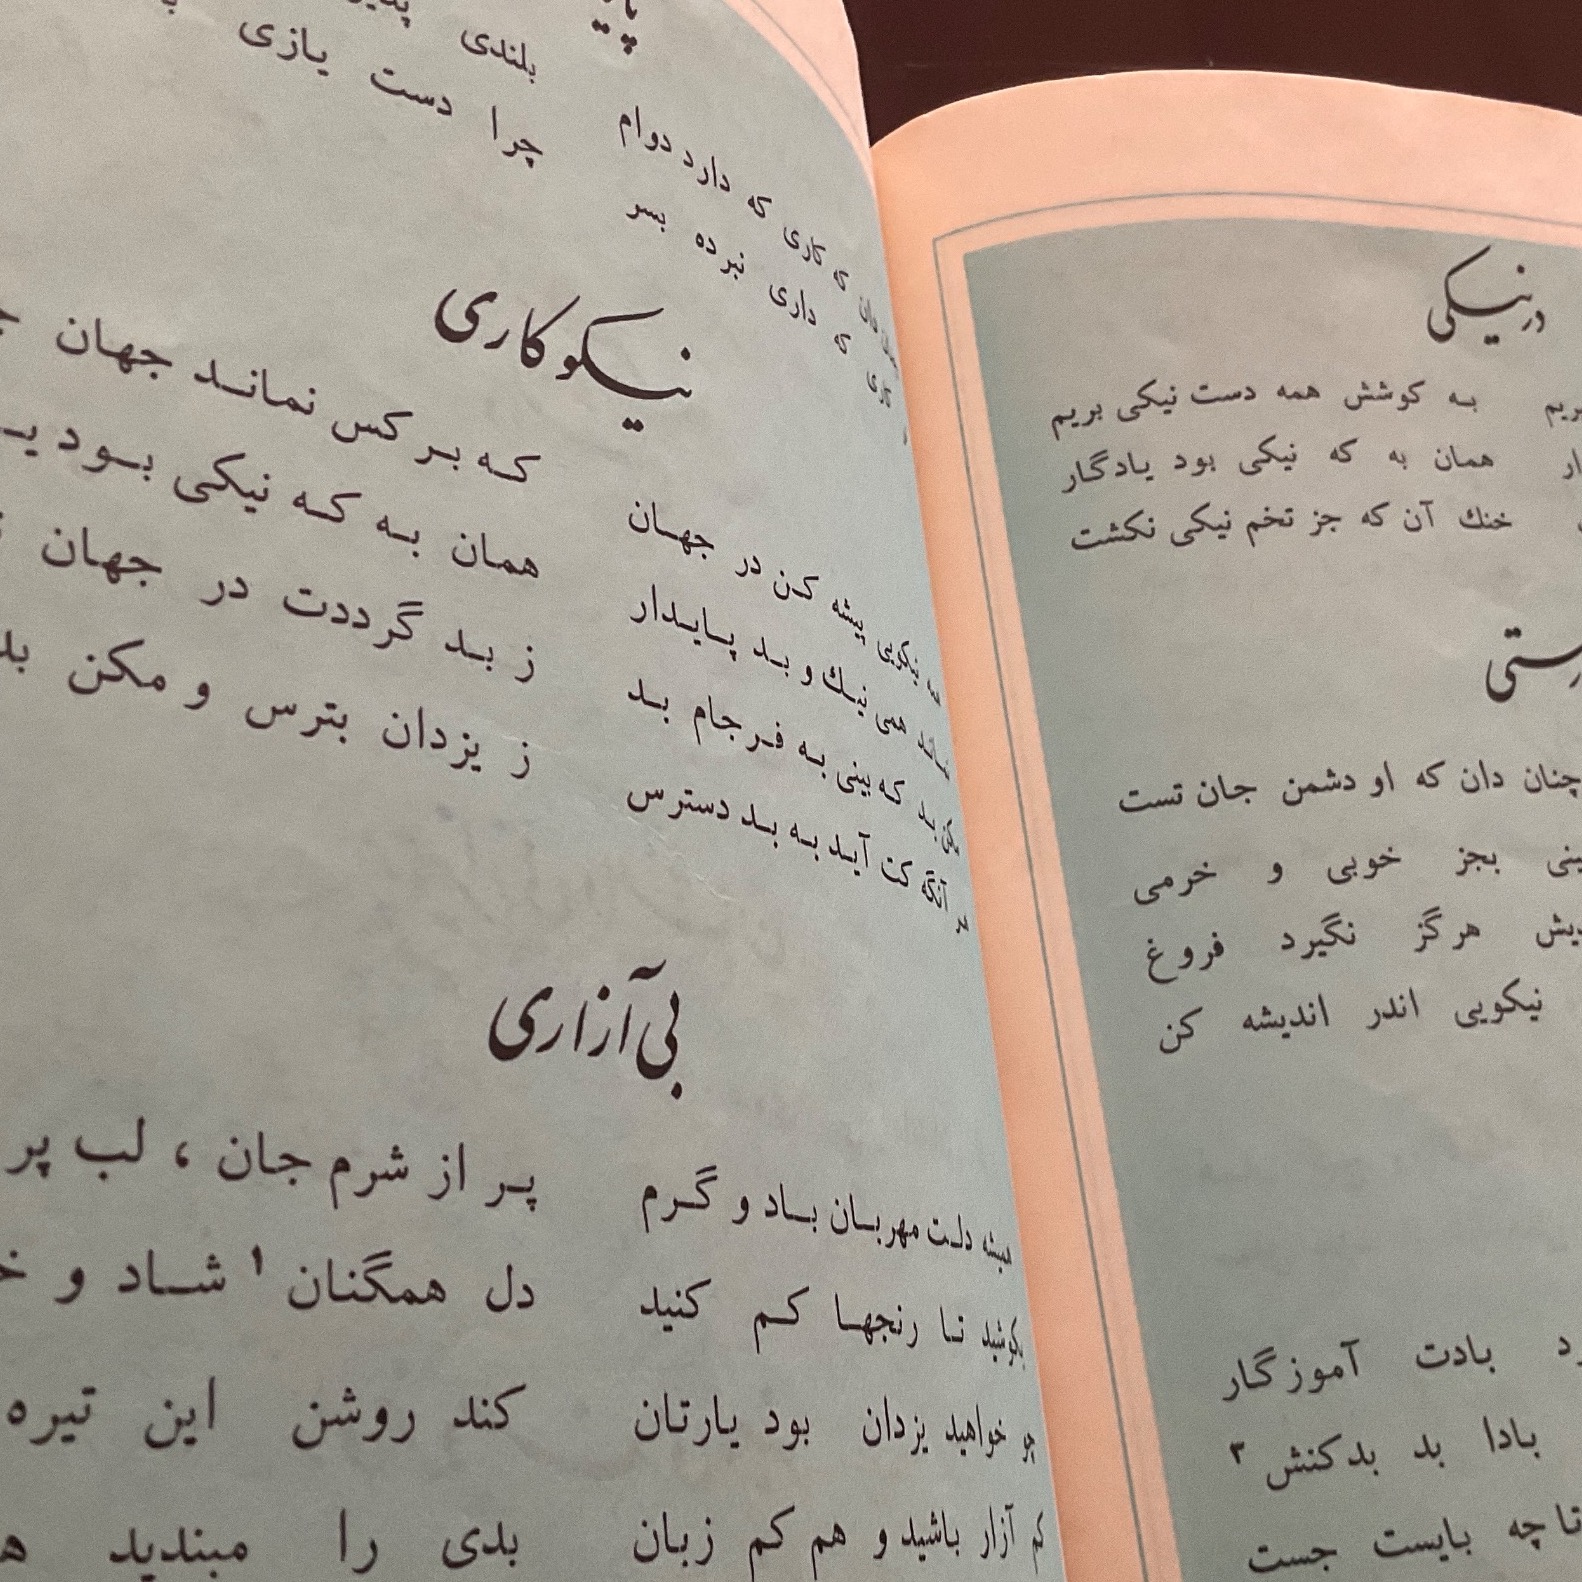 بلندی
چرا دست یازی
کاری که دارد دوام
که داری نبرده بسر
نیکوکاری
نیکویی پیشه کن در جهان که بر کس نماند جهان
نماند همی نیک و بد پایدار همان به که نیکی بود
مکن بد که بینی به فرجام بد ز بد گرددت در جهان
هر آنگه کت آید به بد دسترس ز یزدان بترس و مکن
بی‌آزاری
همیشه دلت مهربان باد و گرم پر از شرم جان ، لب پر
بکوشید تا رنجها کم کنید دل همگنان ۱ شاد و
چو خواهید یزدان بود یارتان کند روشن این تیره
کم آزار باشید و هم کم زبان بدی را مبندید
در نیکی
به کوشش همه دست نیکی بریم
همان به که نیکی بود یادگار
خنك آن که جز تخم نیکی نکشت
چنان دان که او دشمن جان تست
بجز خوبی و خرمی
هرگز نگیرد فروغ
نیکویی اندر اندیشه کن
بادت آموزگار
بادا بد بدکنش ۳
تا چه بایست جست